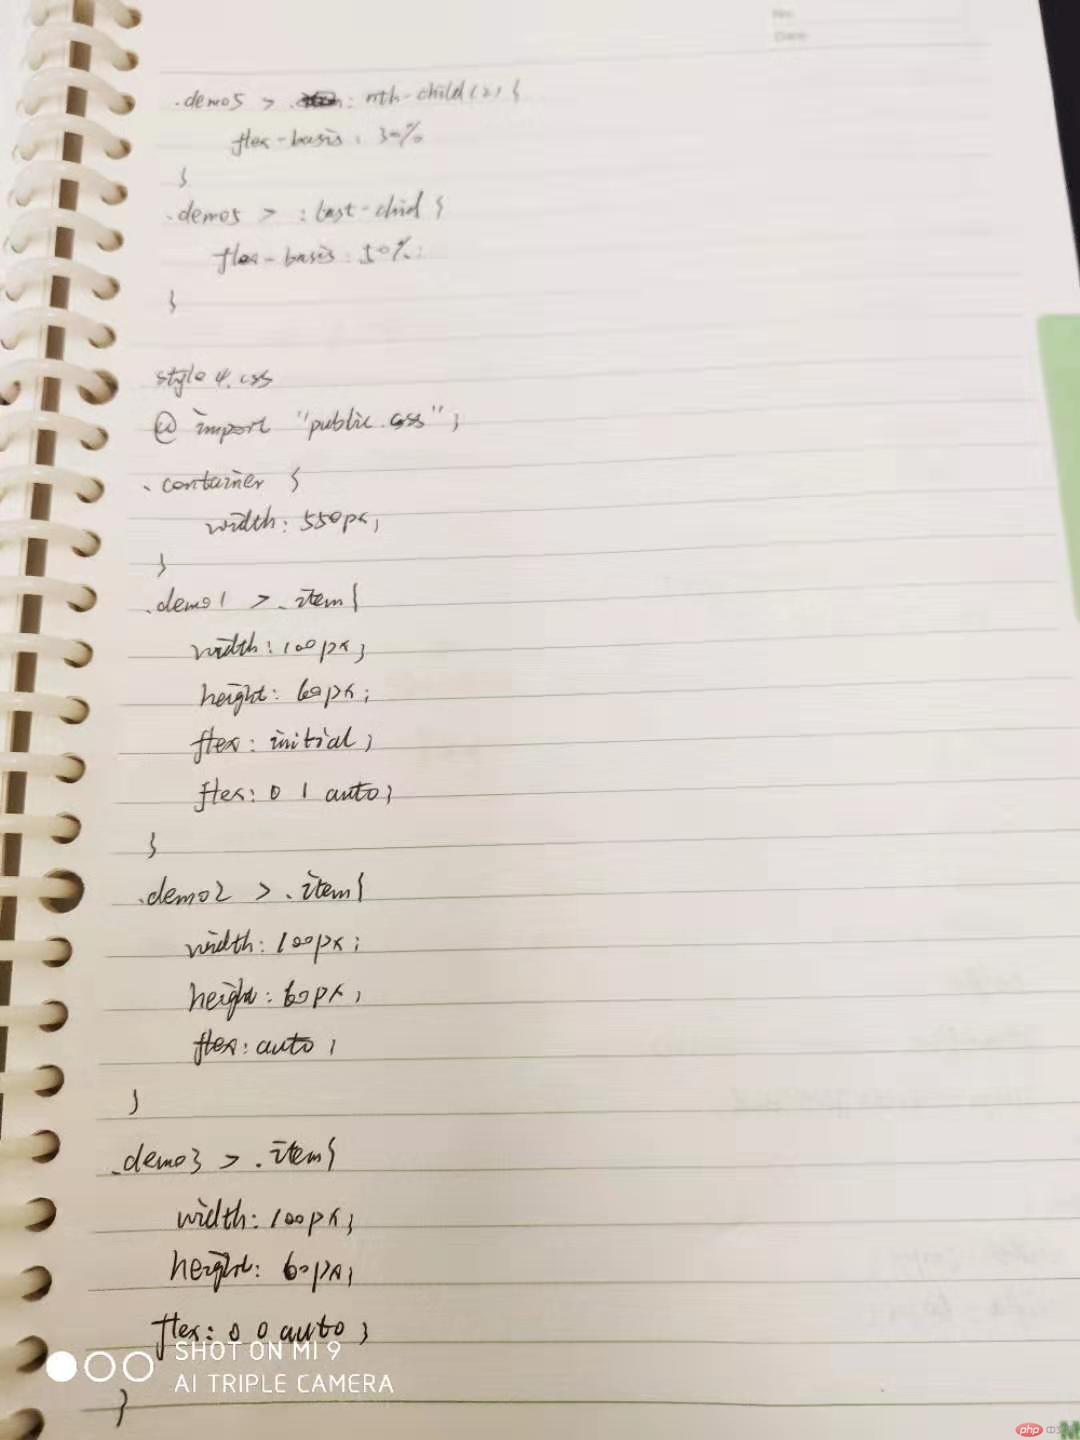 No.
Date
.demo5 > : nth-child(2) {
flex-basis: 30%
}
.demo5 > :last-chid {
flex-basis: 50%;
}
style4.css
@import "public.css";
.container {
width: 550px;
}
.demo1 > .item{
width: 100px;
height: 60px;
flex: initial;
flex: 0 1 auto;
}
.demo2 > .item{
width: 100px;
height: 60px;
flex: auto;
}
.demo3 > .item{
width: 100px;
height: 60px;
flex: 0 0 auto;
}
SHOT ON MI 9
AI TRIPLE CAMERA
php